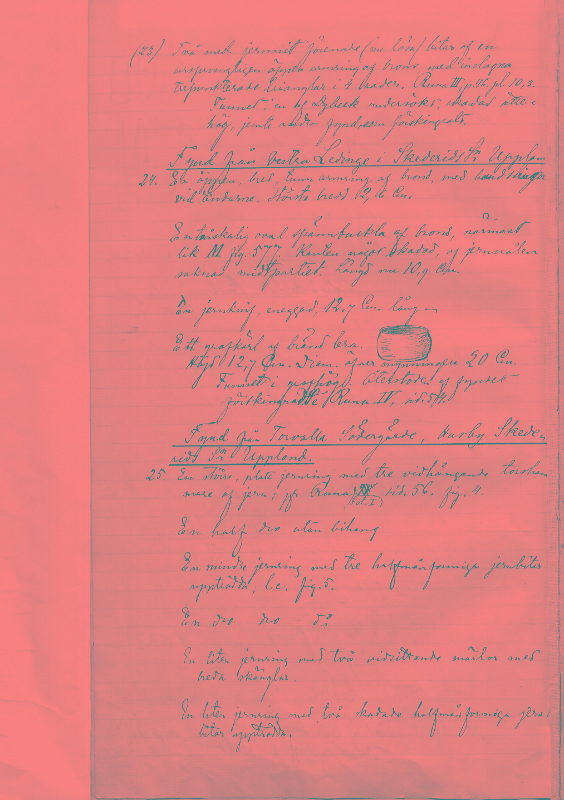 (23). Två med jernnit förenade (nu lösa) bitar af en
ursprungligen öppen armring af brons, med inslagna
tripunkterade trianglar i 4 rader. Runa III, p. 46, pl. 10, 2.
Funnet i en af Dybeck undersökt, skadad ätte-
hög, jemte andra fynd, som förskingrats.
Fynd från Vestra Ledinge i Skederids Sn Uppland
24. En öppen, bred, tunn armring af brons, med
vid ändarne. Största bredd 12, Cm.
En tvåskalig oval spännbuckla af brons, närmast
lik M. fig. 577. Kanten något skadad, af jernnålen
saknas midtpartiet. Längd 10,9 Cm.
En jernknif, eneggad, 12.7 Cm. lång
Ett grafkärl af bränd lera.
Höjd 12,7 Cm. Diam. öfver mynningen 20 Cm.
Funnet i grafhög. Återstoden af fyndet
förskingradt. (Runa IV, sid. 51).
Fynd från Torvalla Södergärde, Husby Skede-
rids Sn Uppland.
25. En större, platt jernring med tre vidhängande torsham-
mare af jern; jfr Runa sid. 56. fig. 4.
En half d:o utan bihang
En mindre jernring med tre halfmånformiga jernbitar
uppträdda, l.c. fig. 5.
En d:o d:o d:o
En liten jernring med två vidsittande märlor med
breda skänglar.
En liten jernring med två skadade halfmånformiga jern-
bitar uppträdda.